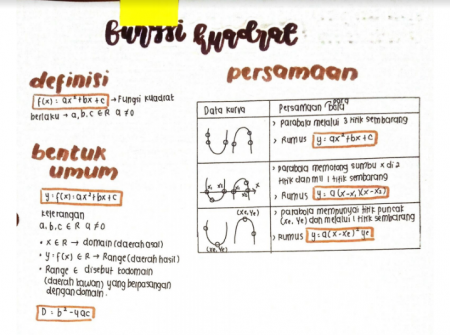 Fungsi kuadrat
definisi
f(x) = ax²+bx+c → Fungsi kuadrat
berlaku → a,b,c ∈ R a ≠ 0
bentuk
umum
y = f(x) = ax²+bx+c
keterangan
a,b,c ∈ R a ≠ 0
• x ∈ R → domain (daerah asal)
• y = f(x) ∈ R → Range (daerah hasil)
• Range ∈ disebut kodomain
(daerah kawan) yang berpasangan
dengan domain.
D = b² - 4ac
persamaan
Data kurva
Persamaan
> parabola melalui 3 titik sembarang
> Rumus y = ax²+bx+c
> parabola memotong sumbu x di 2
titik dan mll 1 titik sembarang
> Rumus y = a(x-x₁)(x-x₂)
x₁ x₂ x₁ x₂ x
> parabola mempunyai titik puncak
(xe, ye) dan melalui 1 titik sembarang
> Rumus y = a(x-xe)² ye
(xe, ye)
(xe, ye)